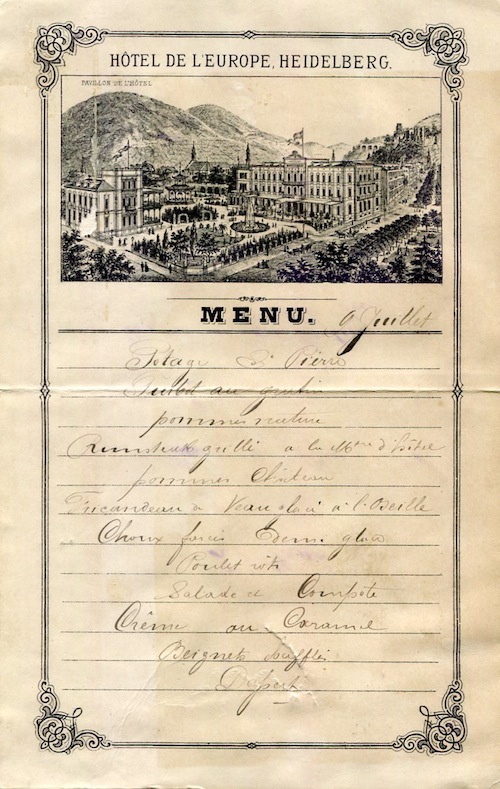 HÔTEL DE L'EUROPE, HEIDELBERG.
PAVILLON DE L'HÔTEL
MENU.
Juillet
Potage St Pierre
Turbot au gratin
pommes nature
Rumsteak grillé a la Mtre d'hôtel
pommes Château
Fricandeau de Veau glacé à l'Oseille
Choux farcis Demi glace
Poulet rôti
Salade et Compôte
Crême au Caramel
Beignets Soufflés
Dessert